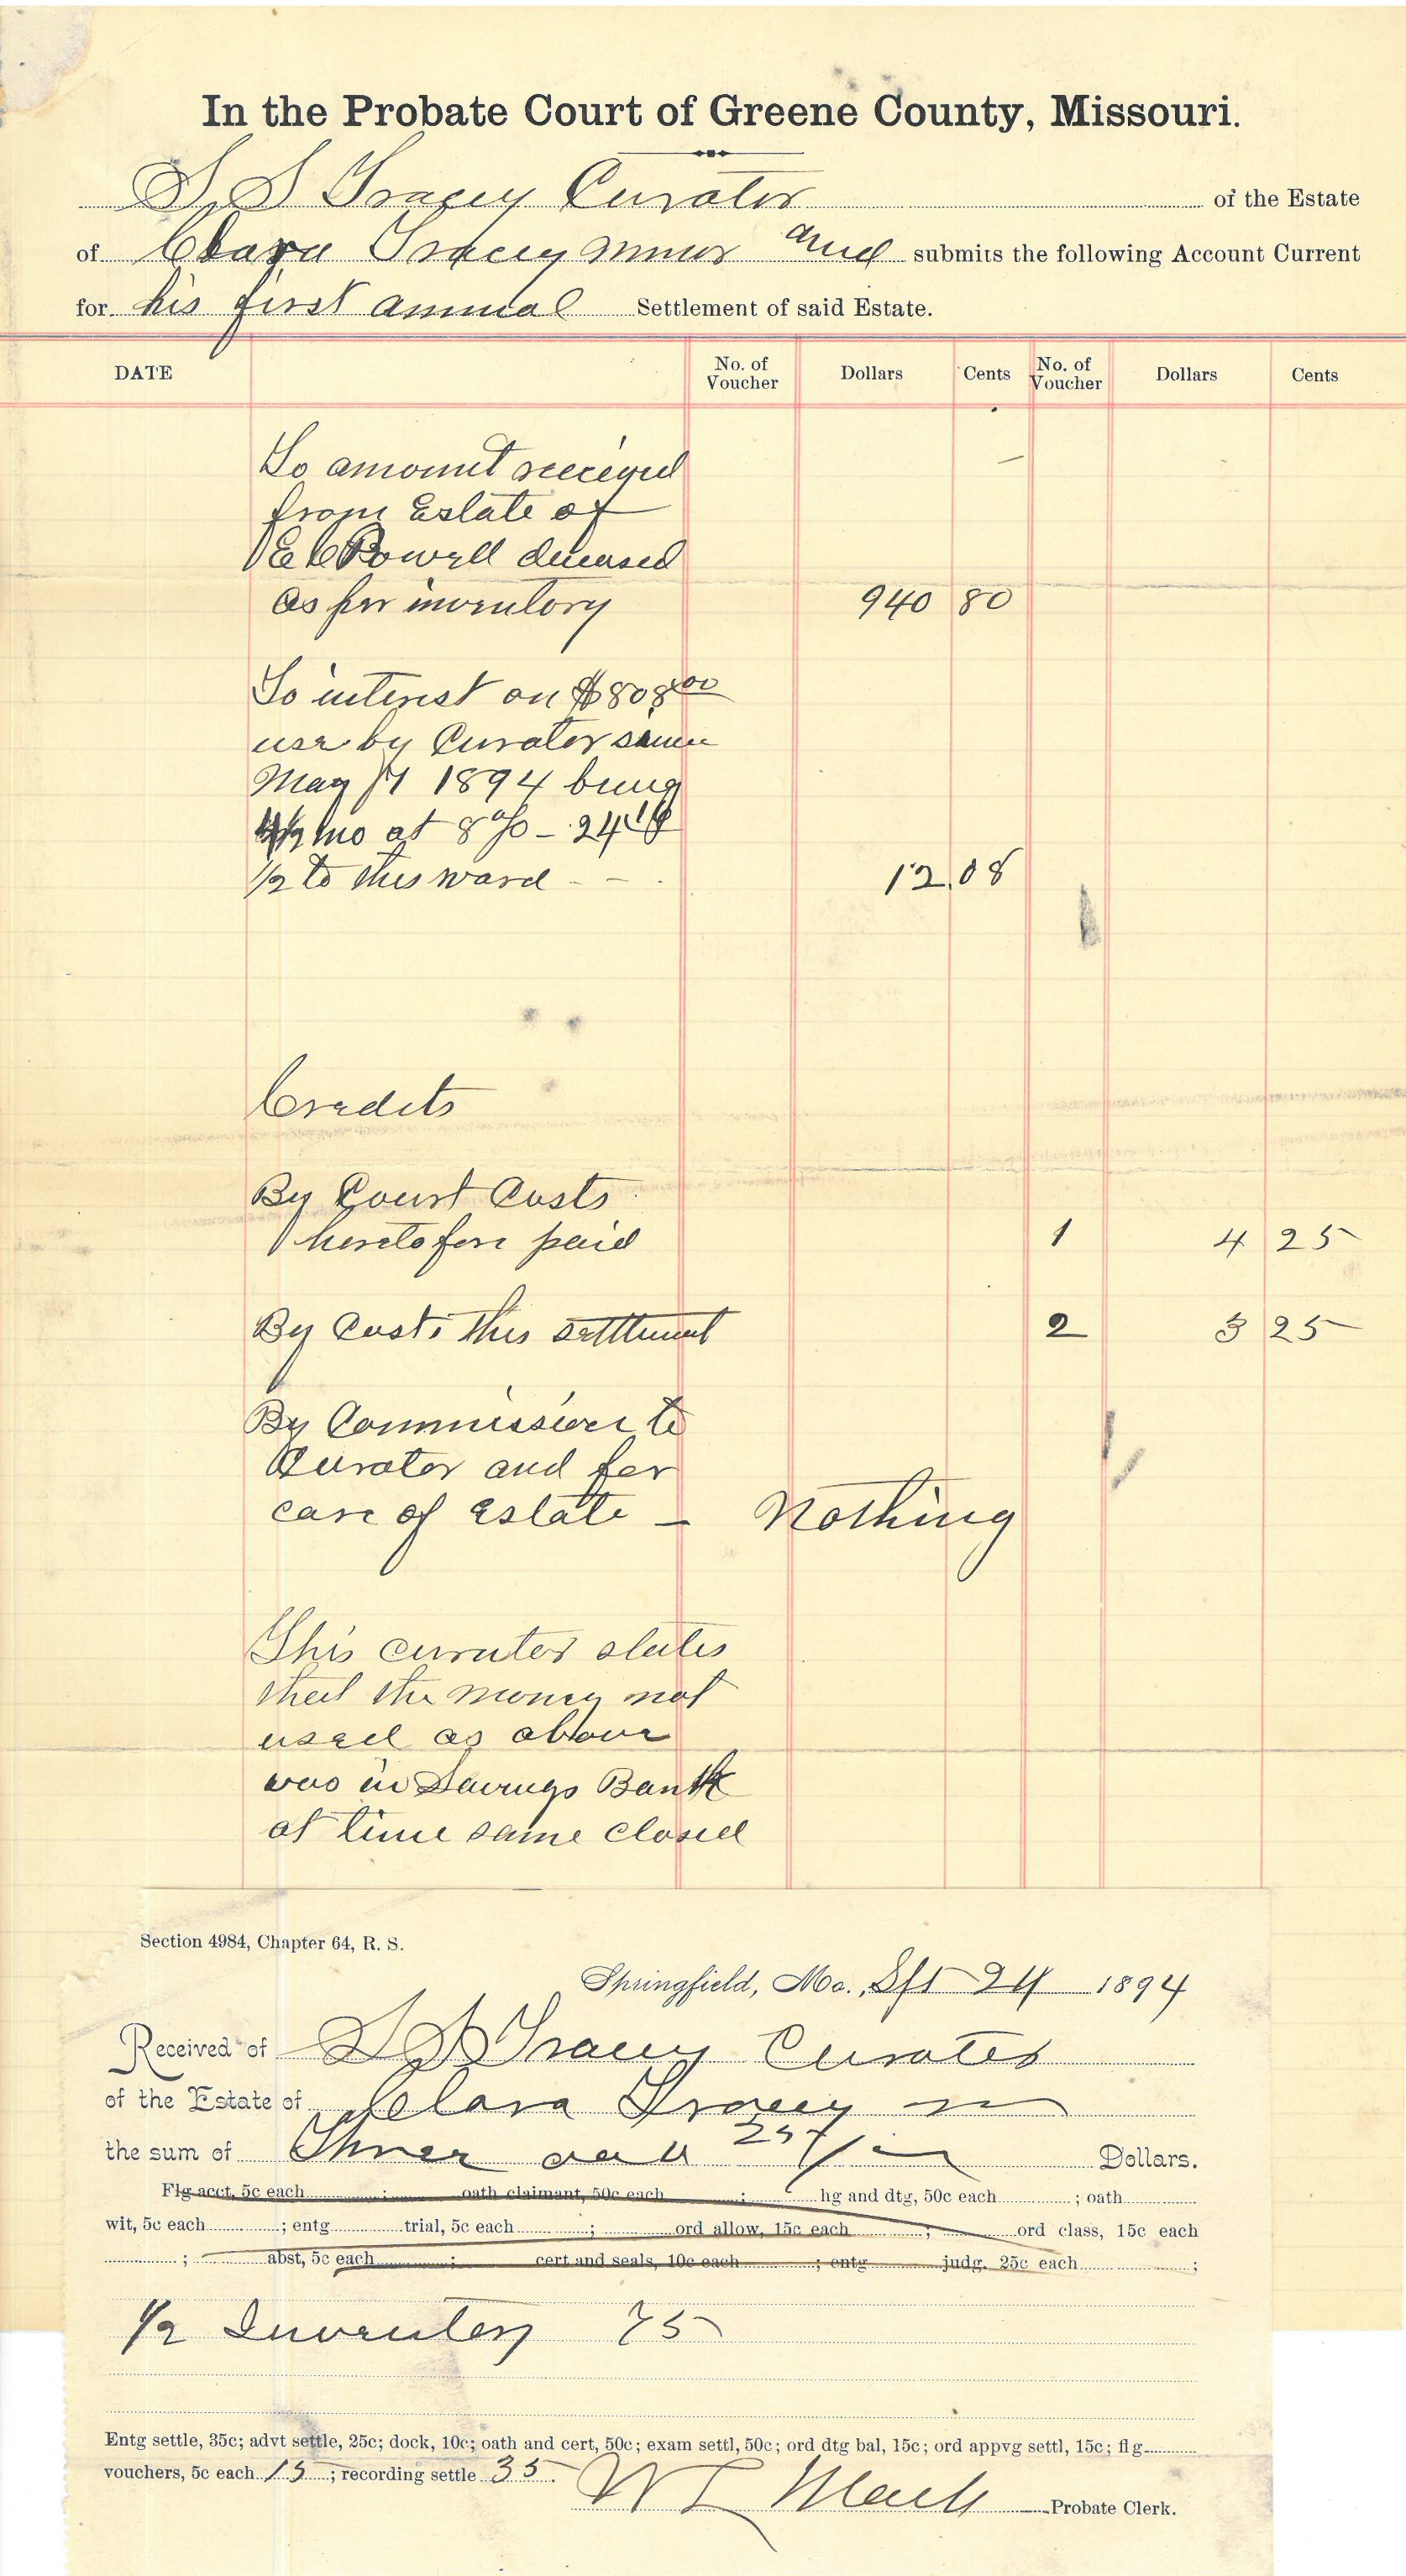 In the Probate Court of Greene County, Missouri.
S. S Tracey Curator of the Estate
of Clara Tracey minor and submits the following Account Current
for his first annual Settlement of said Estate.
DATE No. of Voucher Dollars Cents No. of Voucher Dollars Cents
To amount received
from Estate of
E C Powell deceased
as per inventory 940 80
To interest on $808.00
use by Curator since
May 11 1894 being
4 1/2 mo at 8% - 24.16
1/2 to this ward - - 12.08
Credits
By Court Costs
heretofore paid 1 4 25
By Costs this settlement 2 3 25
By Commission to
Curator and for
care of Estate - Nothing
This curator states
that the money not
used as above
was in Savings Bank
at time same closed
Section 4984, Chapter 64, R. S.
Springfield, Mo., Sept 24 1894
Received of S S Tracey Curator
of the Estate of Clara Tracey m
the sum of Three and 25/ Dollars.
Flg acct, 5c each ; oath claimant, 50c each ; hg and dtg, 50c each ; oath
wit, 5c each ; entg trial, 5c each ; ord allow, 15c each ; ord class, 15c each
; abst, 5c each ; cert and seals, 10c each ; entg judg. 25c each ;
1/2 Inventory 75
Entg settle, 35c; advt settle, 25c; dock, 10c; oath and cert, 50c; exam settl, 50c; ord dtg bal, 15c; ord appvg settl, 15c; flg
vouchers, 5c each 15 ; recording settle 35.
W L Mack Probate Clerk.